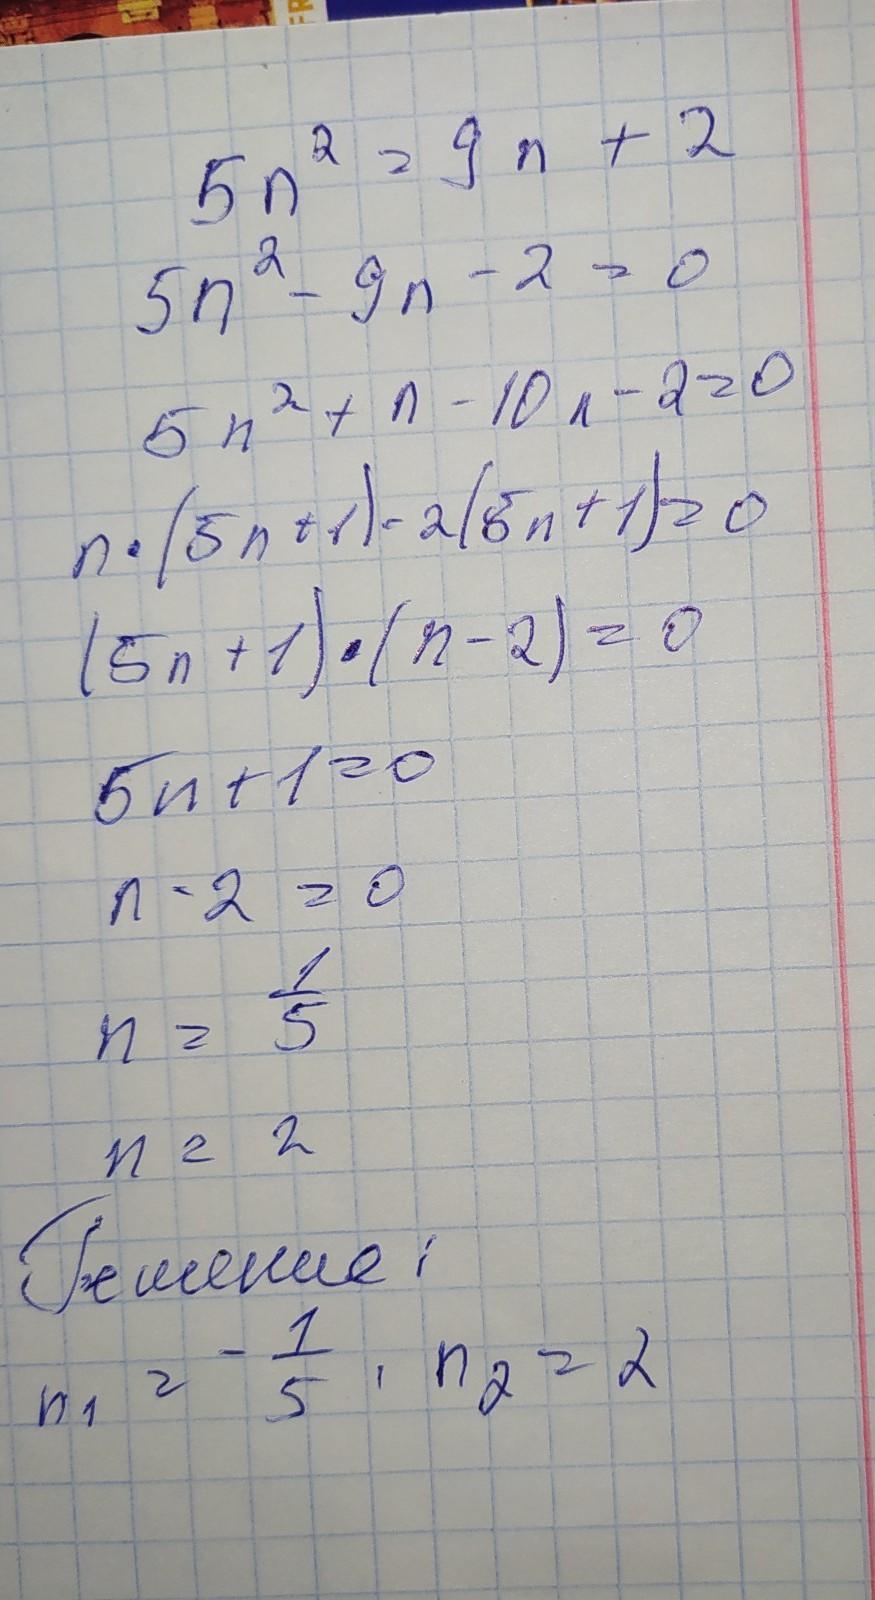 5n² = 9n + 2
5n² - 9n - 2 = 0
5n² + n - 10n - 2 = 0
n·(5n+1) - 2(5n+1) = 0
(5n+1)·(n-2) = 0
5n+1=0
n-2 = 0
n = 1/5
n = 2
Решение:
n₁ = -1/5, n₂ = 2